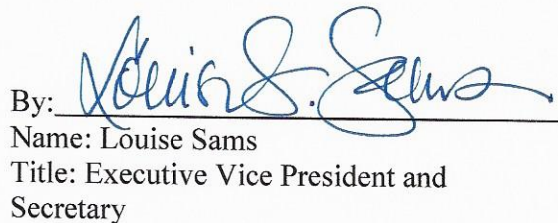 By: Louise S. Sams
Name: Louise Sams
Title: Executive Vice President and
Secretary